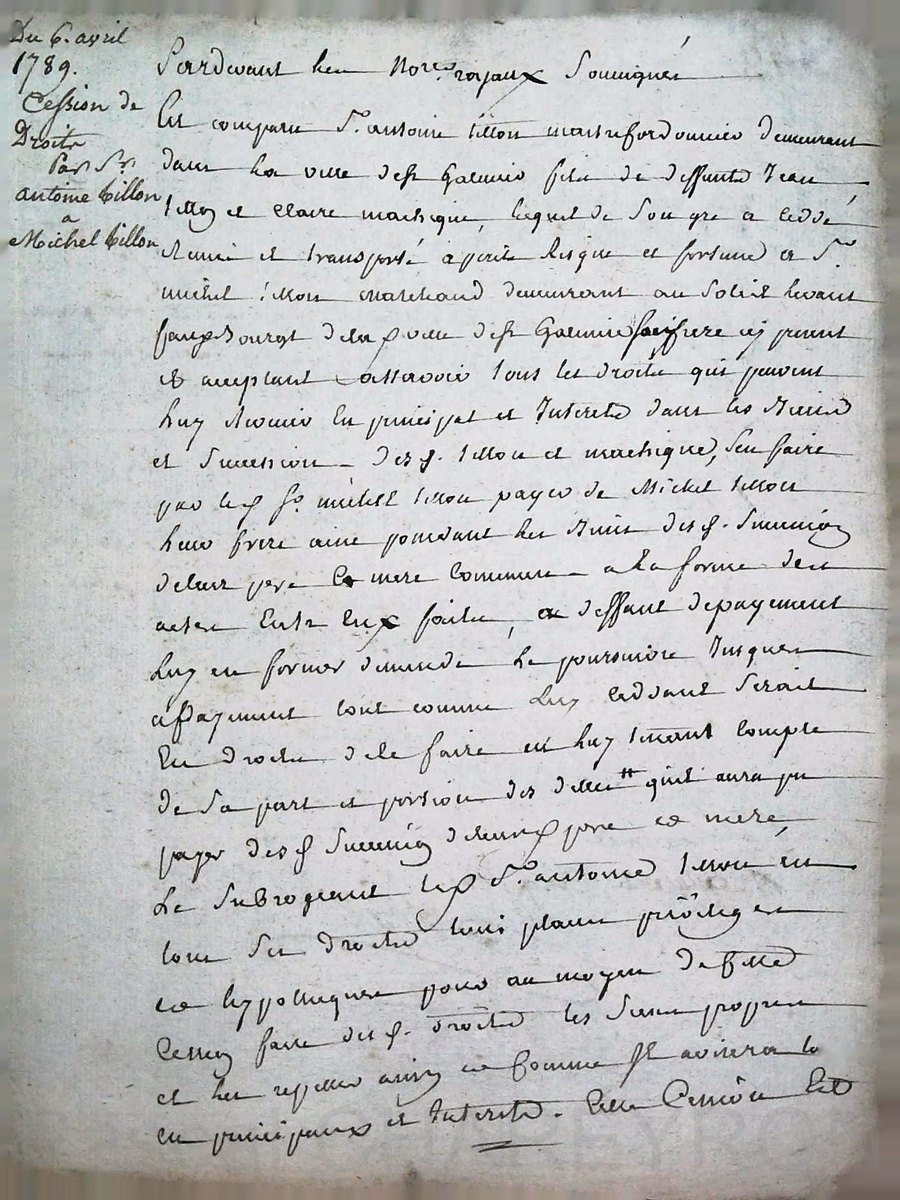 Du 6. avril
1789.
Cession de
Droits
Par Sr.
antoine tillon
a
Michel tillon
Pardevant Les Nores. royaux Soussignés
Est comparu Sr. antoine tillon maitre cordonnier demeurant
dans La ville de St Galmier fils de deffunts Jean
tillon et Claire machique, lequel de Son gré a Ceddé
Remis et transporté à perils Risque et fortune a Sr.
michel tillon marchand demeurant au Soleil levant
fauxbourgt de lad. ville de St Galmier Son frere icy present
et acceptant assavoir tous les droits qui peuvent
Luy Revenir En principal et Interets dans les Biens
et Succession desd. tillon et machique, Sen faire
par led. Sr. michel tillon payer de Michel tillon
Leur frere ainé possedant Les Biens desd. Successions
deleur pere Et mere Commune a La forme des
actes Entre Eux faits, a deffaut depayement
Luy en former demande Le poursuivre Jusques
a Payement tout comme Luy Ceddant Serait
En droits de le faire en Luy tenant Compte
de Sa part et portion des dettes quil aura pu
payer desd. Successions deleursd. pere et mere,
Le Subrogeant led. Sr. antoine tillon en
tous Ses droits lieus places privileges
et hypotheques pour au moyen de cette
Cession faire desd. droits les Siens propres
et Les repeter ainsy et Comme Il avisera
en principaux et Interets. Cette Cession